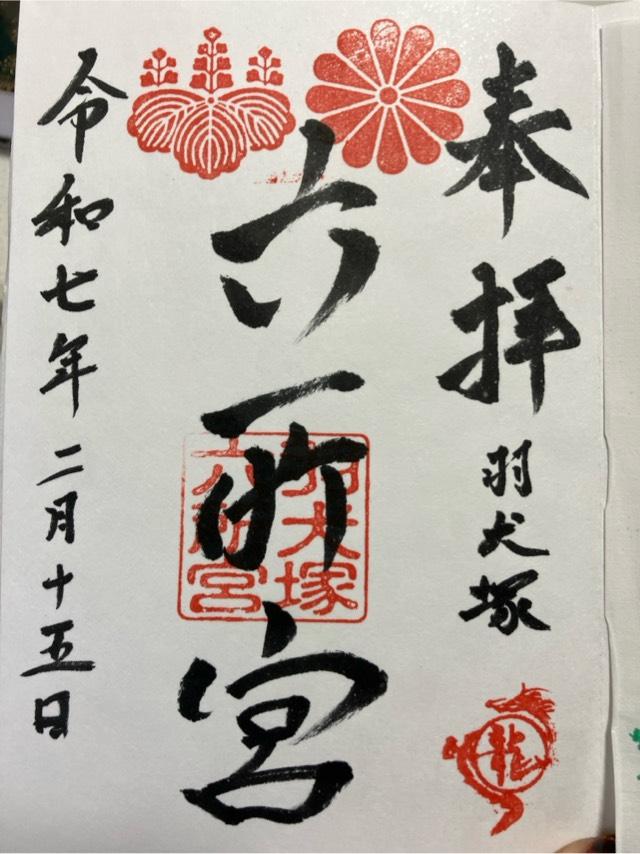 奉拝
羽犬塚
龍
六所宮
羽犬塚
六所宮
令和七年二月十五日